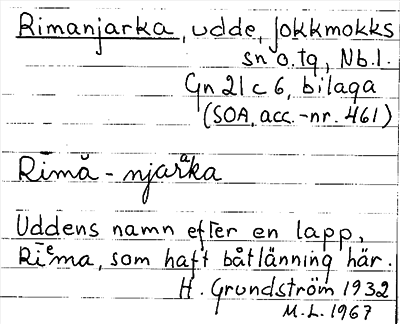 Rimanjarka, udde, Jokkmokks
sn o. tg, Nb.l.
Gn 21 c 6, bilaga
(SOA, acc.-nr. 461)
Rīmă - njarᵃka
Uddens namn efter en lapp,
Rīᵉma, som haft båtlänning här.
H. Grundström 1932
M.L. 1967